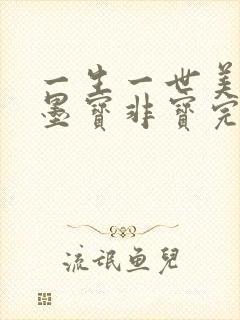 一生一世美
墨寶非寶完
流氓魚兒